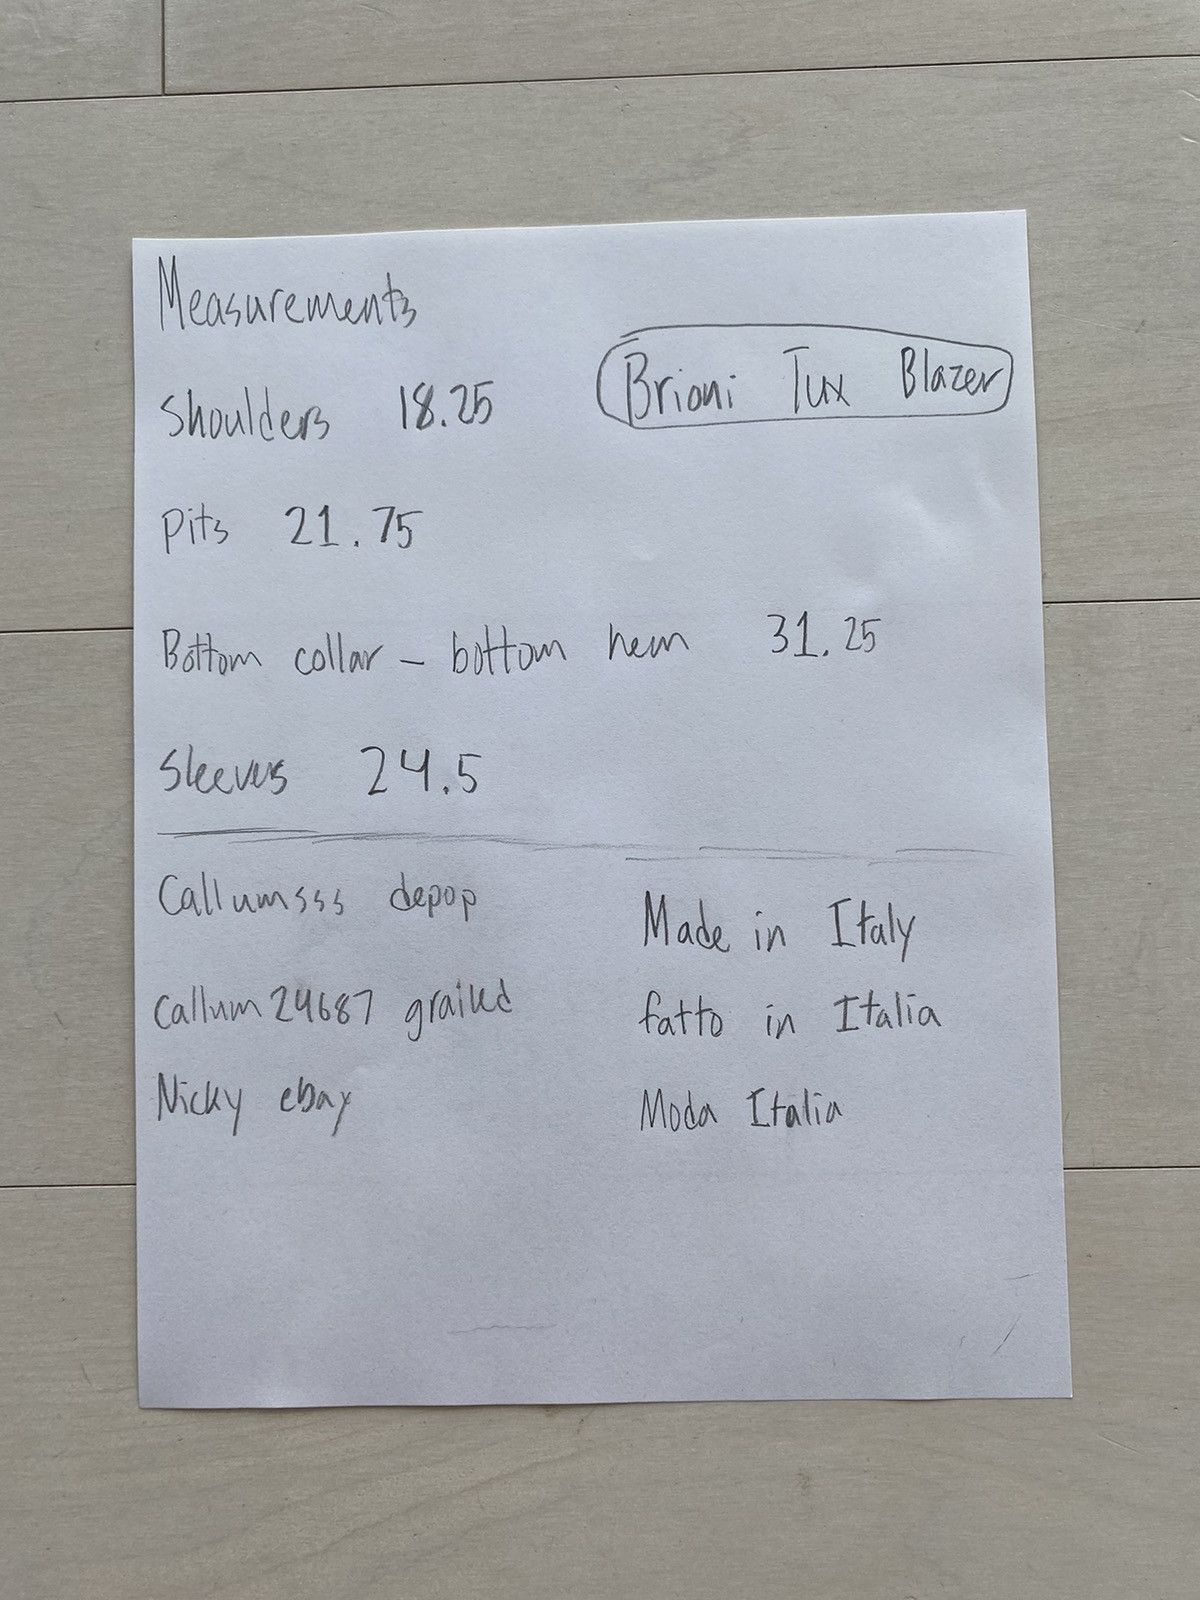 Measurements
Brioni Tux Blazer
Shoulders 18.25
Pits 21.75
Bottom collar - bottom hem 31.25
Sleeves 24.5
Callumsss depop
Callum24687 grailed
Nicky ebay
Made in Italy
fatto in Italia
Moda Italia